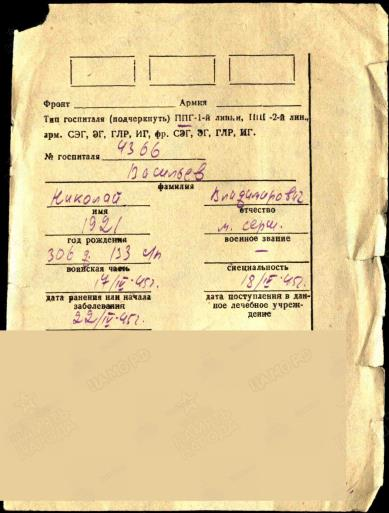 Фронт Армия
Тип госпиталя (подчеркнуть) ППГ-1-й линии, ППГ-2-й лин.,
арм. СЭГ, ЭГ, ГЛР, ИГ, фр. СЭГ, ЭГ, ГЛР, ИГ.
№ госпиталя 4366
Васильев
фамилия
Николай Владимирович
имя отчество
1921 м. серж.
год рождения военное звание
306 д. 133 с/п —
воинская часть специальность
17/IV-45г. 18/IV-45г.
дата ранения или начала заболевания дата поступления в данное лечебное учреждение
22/IV-45г.